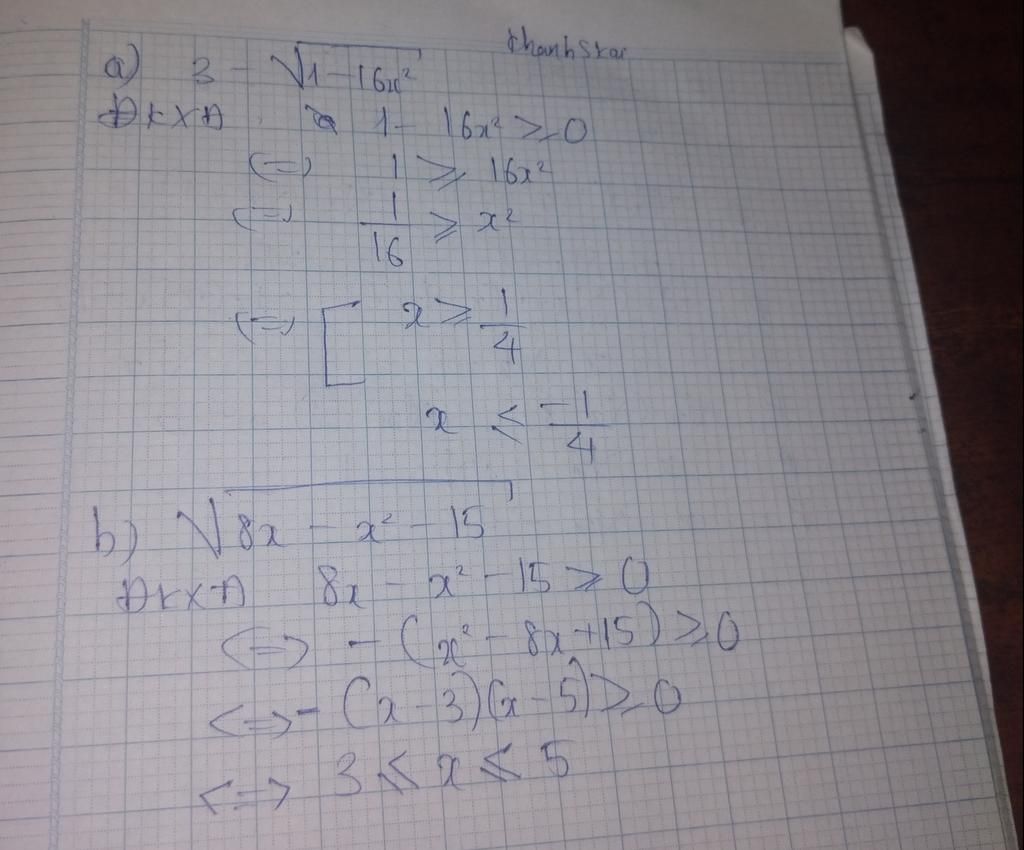 thanhstar
a) 3 - √(1 - 16x²)
ĐKXĐ 1 - 16x² ≥ 0
<=> 1 ≥ 16x²
<=> 1/16 ≥ x²
<=> [ x ≥ 1/4
x ≤ -1/4
b) √(8x - x² - 15)
ĐKXĐ 8x - x² - 15 ≥ 0
<=> - (x² - 8x + 15) ≥ 0
<=> - (x - 3)(x - 5) ≥ 0
<=> 3 ≤ x ≤ 5